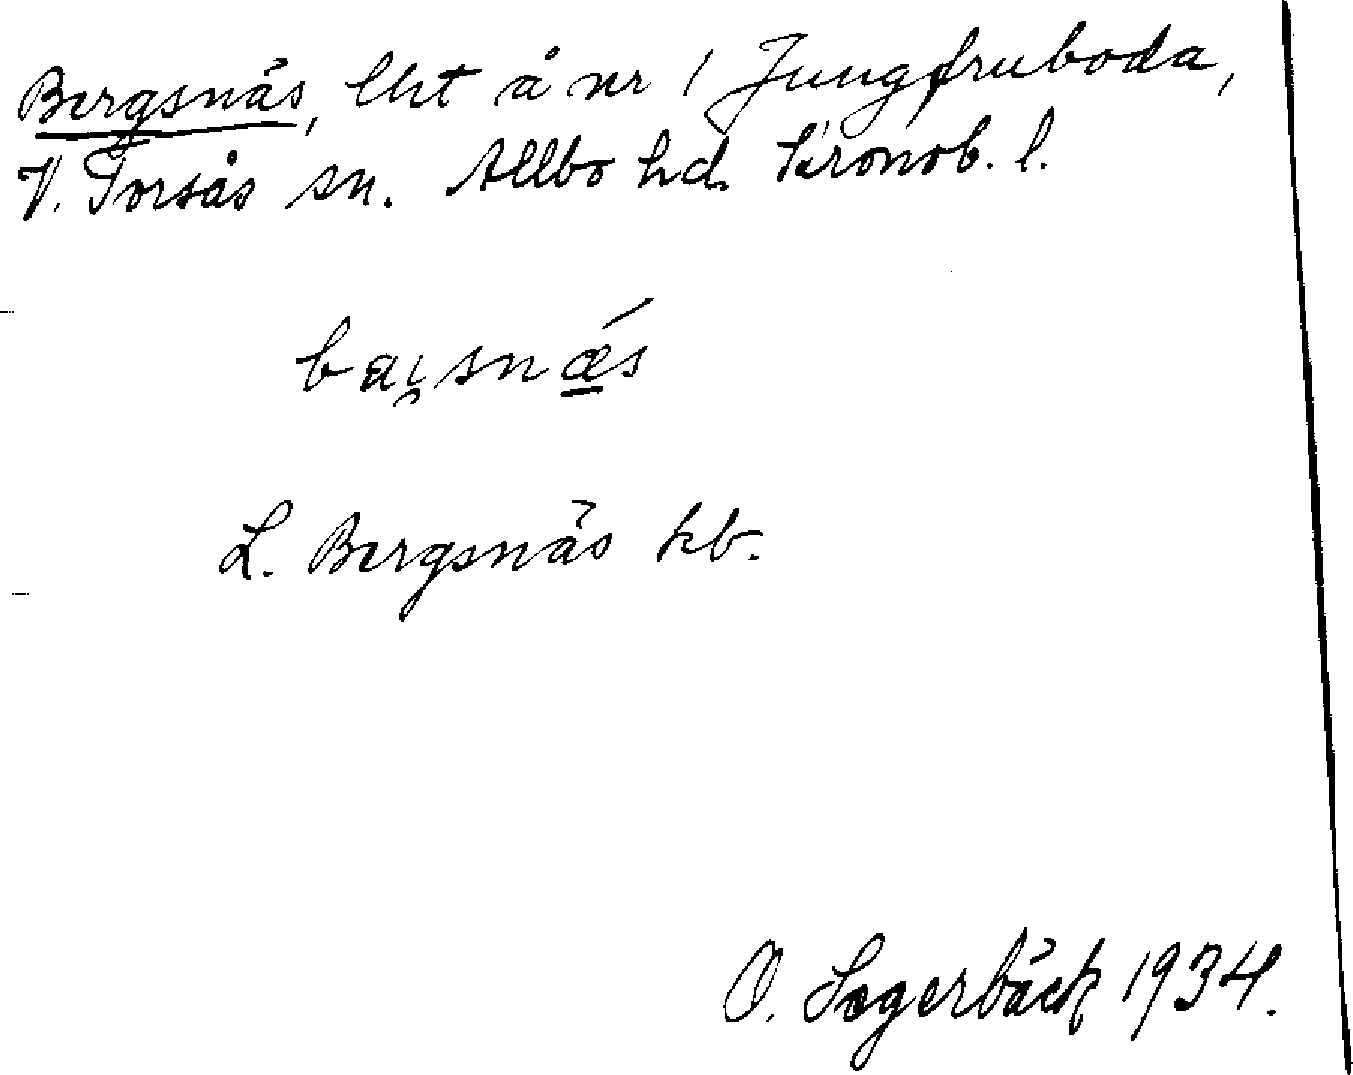 Bergsnäs, lht å nr 1 Jungfruboda,
V. Torsås sn. Allbo hd. Kronob. l.
L. Bergsnäs kb.
O. Sagerbäck 1934.